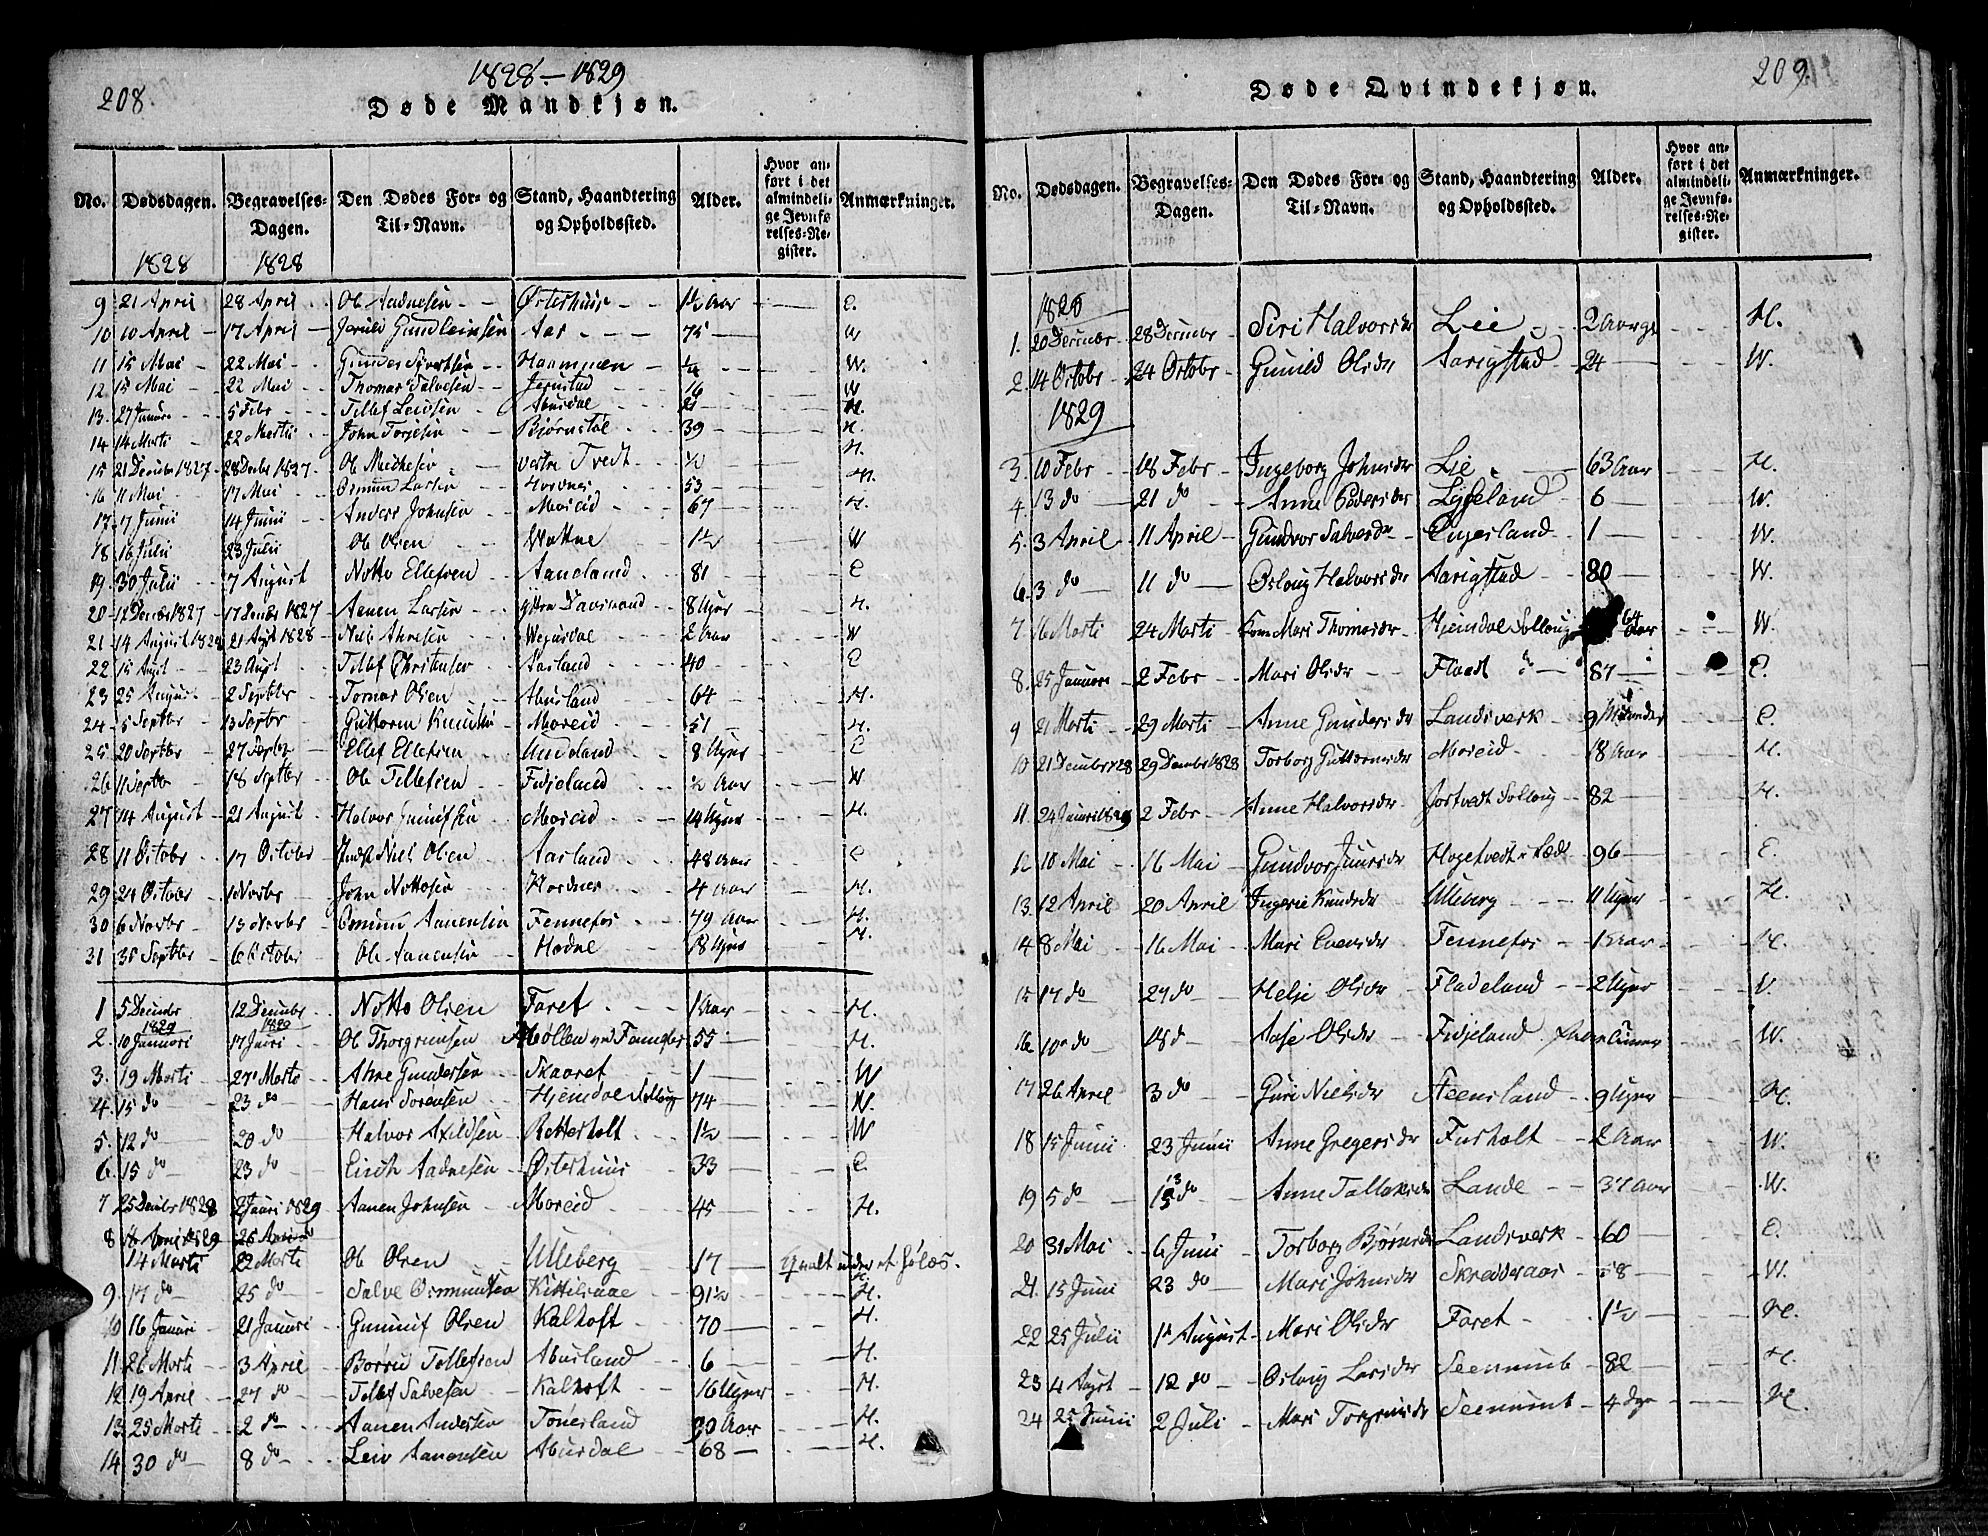 208.
1828 — 1829
Døde Mandkjøn.
No. Dødsdagen. Begravelses-Dagen. Den Dødes For- og Til-Navn. Stand, Haandtering og Opholdssted. Alder. Hvor anført i det almindelige Jevnførelses-Register. Anmærkninger.
1828 1828
9 21 April 28 April Ole Aadnesen Østerhuus 1½ Aar E.
10 10 April 17 April Gundleivsen Aas 75 W
11 15 Mai 22 Mai Gunder Syvertsen ¼ W.
12 15 Mai 22 Mai Thomas Salvesen Jerustad 16 W
13. 27 Januar 5 Febr Tellef Leivsen Abusdal 21 H.
14 14 Marts 22 Martii John Torjesen Bjørnstøl 39 H.
15 21 Decembr 1827 28 Decbr 1827 Ole Vestre Tvedt ½ H.
16 11 Mai 17 Mai Osmund Larsen Hordnes 53 H.
17 7 Junii 14 Junii Anders Johnsen Moseid 67 H.
18 16 Julii 23 Julii Ole Olsen Vatne 1½ W
19. 30 Julii 7 August Notto Ellefsen Aaneland 81 E
20 12 Decembr 1827 17 Decembr 1827 Aanen Larsen 8 Uger H.
21 14 August 1828 21 Augst 1828 Niels Ahresen Vegusdal 2 Aar W
22 15 Augst 23 Augst Tellef Christensen Aasland 40 E
23 25 August 2 Septbr Tomas Olsen Abusland 64 H.
24 5 Septbr 13 Septbr Guttorm Knudsen Moseid 51 H.
25 20 Septbr 27 Septbr Ellef Ellefsen Undeland 8 Uger E
26 11 Septbr 18 Septbr Ole Tellefsen Fidjeland ½ Aar W
27 14 August 21 August Halvor Gunufsen Moseid 14 Uger H.
28 11 Octobr 17 Octobr Niels Olsen Aasland 48 Aar E
29 24 Octobr 1 Novbr John Nottosen Hordnes 4 Aar H.
30 6 Novbr 13 Novbr Osmund Aanensen Fennefos 79 Aar H.
31 30 Septbr 6 Octobr Ole Aanensen Hodne 18 Uger H.
1 5 Decembr 12 Decembr Notto Olsen Faret 1 Aar H.
1829 1829
2. 10 Januari 17 Januari Ole Thorgrimsen Møllen ved Fennefos 55 H.
3. 19 Marti 27 Marts Ahre Gundersen Skaaret 1 W
4. 15 do 23 do Hans Sørensen Hjemdal Solloug 74 W.
5. 12 do 20 do Halvor Axildsen Retterholt 1½ W
6. 15 do 23 do Erich Aadnesen Østerhuus 33 E.
7 25 Decembr 1828 2 Januari 1829 Aanen Johnsen Moseid 45 H.
8 14 Marti 22 Marti Ole Olsen Ulleberg 17 qvalt under et Høløs. H.
9. 17 do 25 do Salve Osmundsen Kittelsaae 91½ H.
10 16 Januari 21 Januari Gunuuf Olsen Kalhoft 70 H.
11 26 Marti 3 April Børru Tellefsen Abusland 6 H.
12 19 April 27 do Tellef Salvesen Kalhoft 16 Uger H.
13 25 Marti 2 do Aanen Andersen Tonerland 90 Aar H.
14 30 do 8 do Leiv Aanensen Abusdal 68 H.
209.
Døde Qvindekjøn.
No. Dødsdagen. Begravelses-Dagen. Den Dødes For- og Til-Navn. Stand, Haandtering og Opholdssted. Alder. Hvor anført i det almindelige Jevnførelses-Register. Anmærkninger.
1828
1. 20 Decembr 28 Decembr Siri Halvorsdr Lie 2 H.
2. 14 Octobr 24 Octobr Gunild Olsdr Aarigstad 24 W.
1829
3. 10 Febr 18 Febr Ingeborg Johnsdr Lie 63 Aar H.
4. 13 do 21 do Anne Pedersdr Lygeland 6 W.
5. 3 April 11 April Gundvor Salvesdr Engesland 1 W.
6. 3 do 11 do Osloug Halvorsdr Aarigstad 80 W.
7 16 Marti 24 Marti Kone Mari Thomasdr Hjemdal Solloug 64 Aar W.
8. 25 Januari 2 Febr Mari Olsdr Flaadt 87 E.
9 21 Marti 29 Marti Anne Gundersdr Landsverk 9 Maaneder E.
10 21 Decembr 28 29 Decembr 1828 Torborg Guttormsdr Moseid 18 Aar H.
11 24 Januari 1829 2 Febr Anne Halvorsdr Jortvedt Solloug 82 H.
12 10 Mai 16 Mai Gundvor Juursdr Hogetvedt 96 E.
13. 12 April 20 April Ingerie Knudsdr Ulleberg 11 Uger H.
14 8 Mai 16 Mai Mari Evensdr Fennefos 1 Aar H.
15 17 do 24 do Helje Olsdr Fladeland 2 Uger W.
16 10 do 18 d Aase Olsdr Fidjeland W.
17 26 April 3 do Guri Nielsdr Steensland 9 Uger H.
18 15 Junii 23 Junii Anne Gregersdr Fusholt 2 Aar W.
19 5 do 13 do Anne Tallaksdr Lande 37 Aar W.
20 31 Mai 6 Junii Torborg Bjørnsdr Landsverk 60 E.
21. 15 Junii 23 do Mari Johnsdr Skreddersaas 58 W.
22 25 Julii 1 August Mari Olsdr Faret 1½ H.
23 4 Augst 12 do Osloug Larsdr Seenumb 82 H.
24 25 Junii 2 Juli Mari Torgrimsdr Seenumt 4 Dge H.